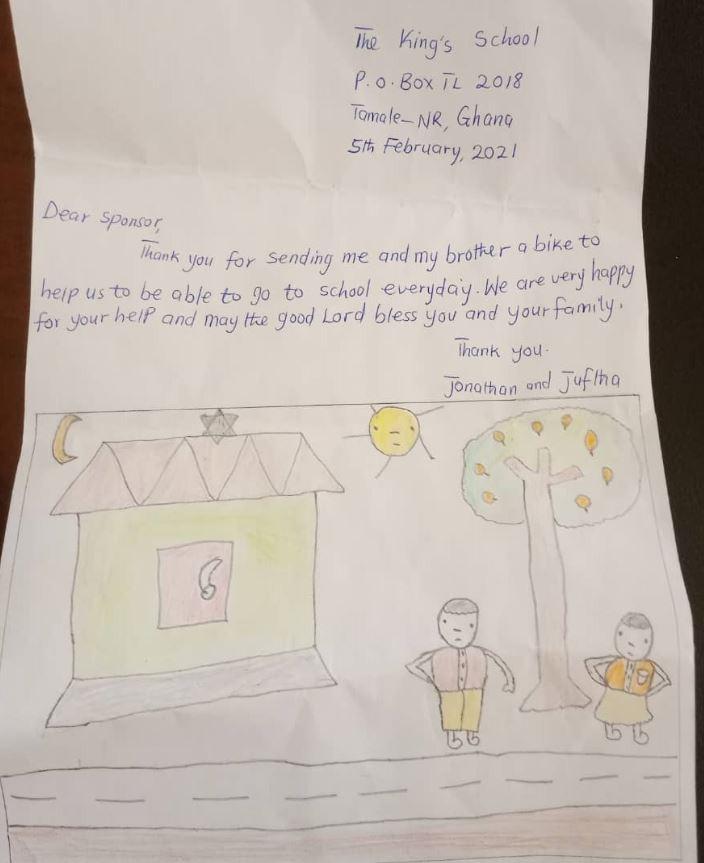 The King's School
P.O. Box TL 2018
Tamale-NR, Ghana
5th February, 2021
Dear Sponsor,
Thank you for sending me and my brother a bike to
help us to be able to go to school everyday. We are very happy
for your help and may the good Lord bless you and your family.
Thank you.
Jonathan and Juftha